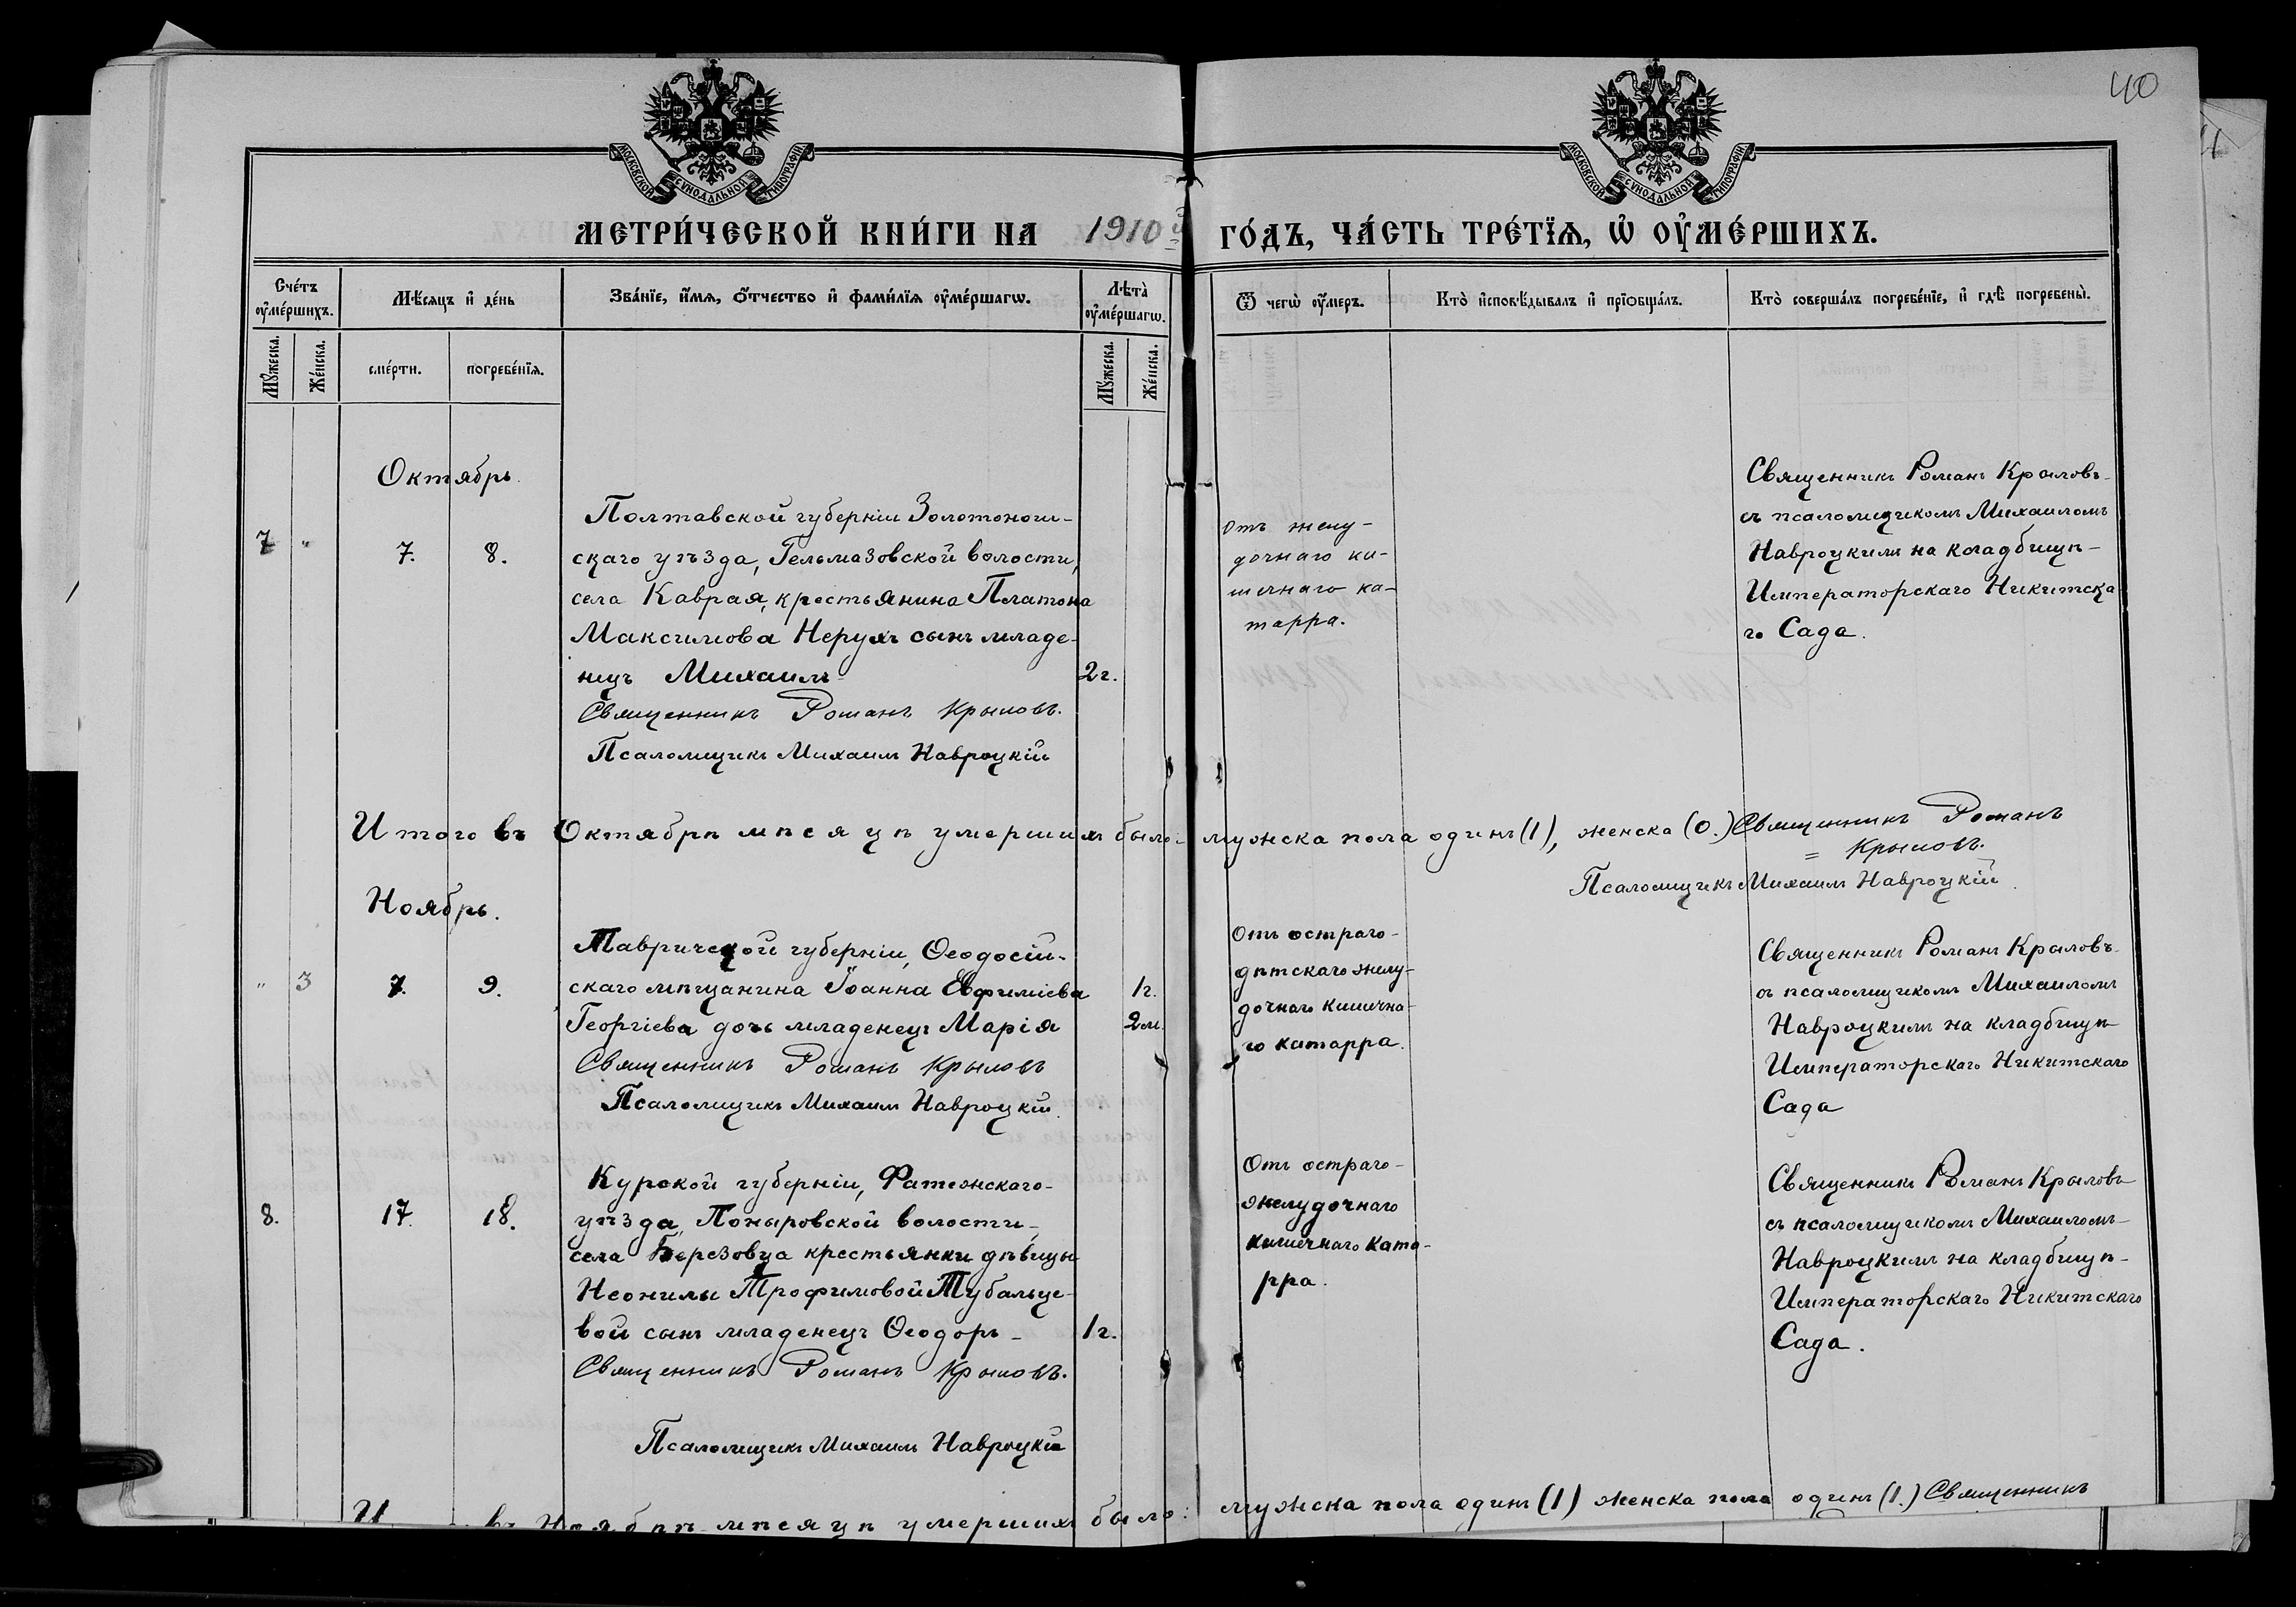 40
МОСКОВСКОЙ СѴНОДАЛЬНОЙ ТИПОГРАФІИ
МОСКОВСКОЙ СѴНОДАЛЬНОЙ ТИПОГРАФІИ
МЕТРИ́ЧЕСКОЙ КНИ́ГИ НА 1910й ГО́ДЪ, ЧА́СТЬ ТРЕ́ТЇѦ, Ѡ҆ ОУ҆МЕ́РШИХЪ.
Счетъ оумершихъ.
Мѣсяцъ и день
Званїе, имя, отчество и фамилїя оумершагѡ.
Лѣта оумершагѡ.
Ѿ чегѡ оумеръ.
Кто исповѣдывалъ и прїобщалъ.
Кто совершалъ погребенїе, и гдѣ погребены.
Мужеска.
Женска.
смерти.
погребенїя.
Мужеска.
Женска.
Октябрь.
7 " 7. 8.
Полтавской губерніи Золотоноши-
скаго уѣзда, Гельмазовской волости,
села Каврая, крестьянина Платона
Максимова Нерухъ сынъ младе-
нецъ Михаилъ 2 г.
Священникъ Романъ Крыловъ.
Псаломщикъ Михаилъ Навроцкій
Отъ желу-
дочнаго ки-
шечнаго ка-
тарра.
Священникъ Романъ Крыловъ
съ псаломщикомъ Михаиломъ
Навроцкимъ на кладбищѣ
Императорскаго Никитска
го Сада.
Итого въ Октябрѣ мѣсяцѣ умершихъ было: мужска пола одинъ (1), женска (0.) Священникъ Романъ
= Крыловъ.
Псаломщикъ Михаилъ Навроцкій.
Ноябрь.
" 3 7. 9.
Таврической губерніи, Ѳеодосій-
скаго мѣщанина Іоанна Евфиміева
Георгіева дочь младенецъ Марія
1 г.
2 м.
Священникъ Романъ Крыловъ
Псаломщикъ Михаилъ Навроцкій.
Отъ остраго
дѣтскаго желу-
дочнаго кишечна-
го катарра.
Священникъ Романъ Крыловъ
съ псаломщикомъ Михаиломъ
Навроцкимъ на кладбищѣ
Императорскаго Никитскаго
Сада
8. 17. 18.
Курской губерніи, Фатежскаго
уѣзда, Поныровской волости
села Березовца крестьянки дѣвицы
Неонилы Трофимовой Тубальце-
вой сынъ младенецъ Ѳеодоръ 1 г.
Священникъ Романъ Крыловъ.
Псаломщикъ Михаилъ Навроцкій
Отъ остраго
желудочнаго
кишечнаго ката-
рра.
Священникъ Романъ Крыловъ
съ псаломщикомъ Михаиломъ
Навроцкимъ на кладбищѣ
Императорскаго Никитскаго
Сада.
въ Ноябрѣ мѣсяцѣ умершихъ было: мужска пола одинъ (1) женска пола одинъ (1.) Священникъ